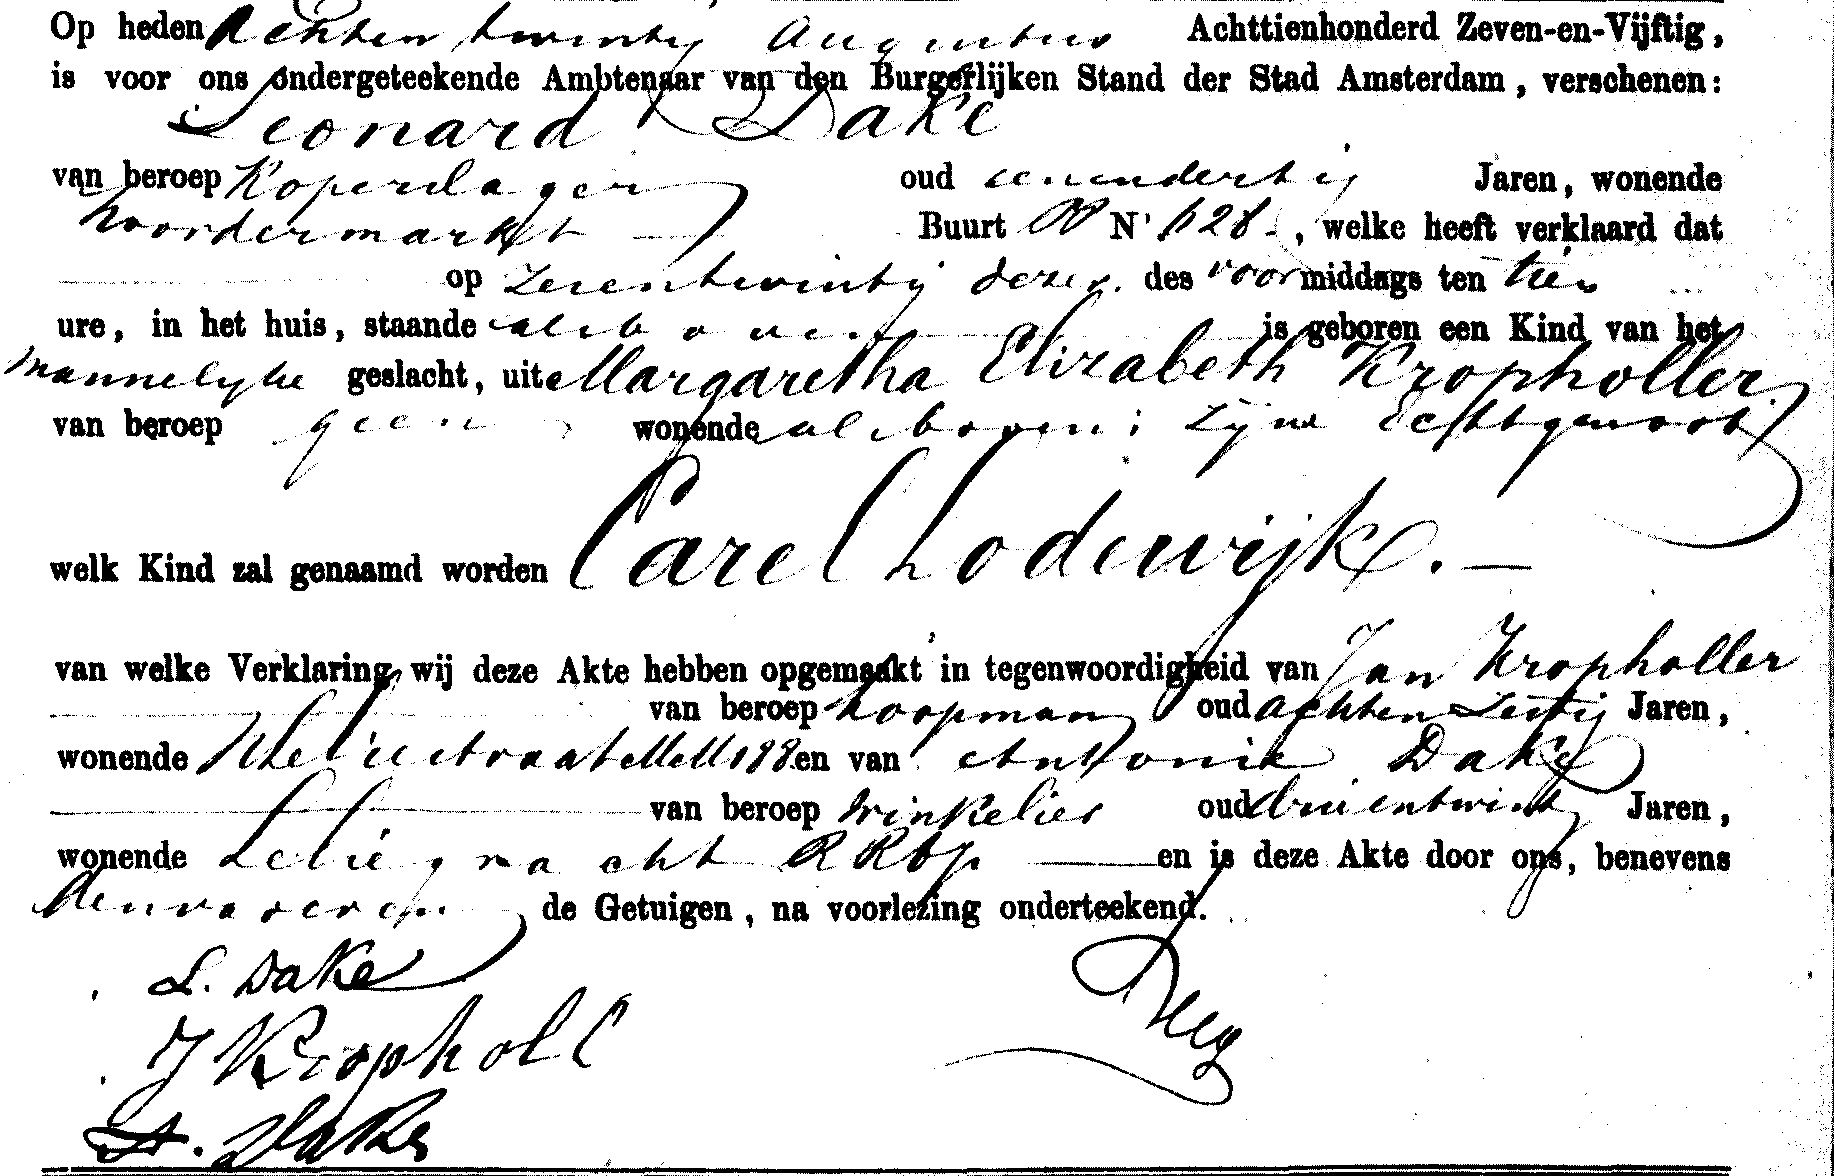 Op heden Achtentwintig Augustus Achttienhonderd Zeven-en-Vijftig,
is voor ons ondergeteekende Ambtenaar van den Burgerlijken Stand der Stad Amsterdam, verschenen:
Leonard Dake
van beroep Koperslager oud eenendertig Jaren, wonende
Noordermarkt Buurt OO N° 128, welke heeft verklaard dat
op zevenentwintig dezer des voormiddags ten tien
ure, in het huis, staande alsboven is geboren een Kind van het
mannelyke geslacht, uit Margaretha Elizabeth Kropholler
van beroep geen wonende alsboven; zijne Echtgenoot
welk Kind zal genaamd worden Carel Lodewijk. —
van welke Verklaring wij deze Akte hebben opgemaakt in tegenwoordigheid van Jan Kropholler
van beroep koopman oud achtenzestig Jaren,
wonende en van Antonie Dake
van beroep winkelier oud drieentwintig Jaren,
wonende Leliegracht en is deze Akte door ons, benevens
den vader en de Getuigen, na voorlezing onderteekend.
L. Dake
J Kropholl
A. Dake